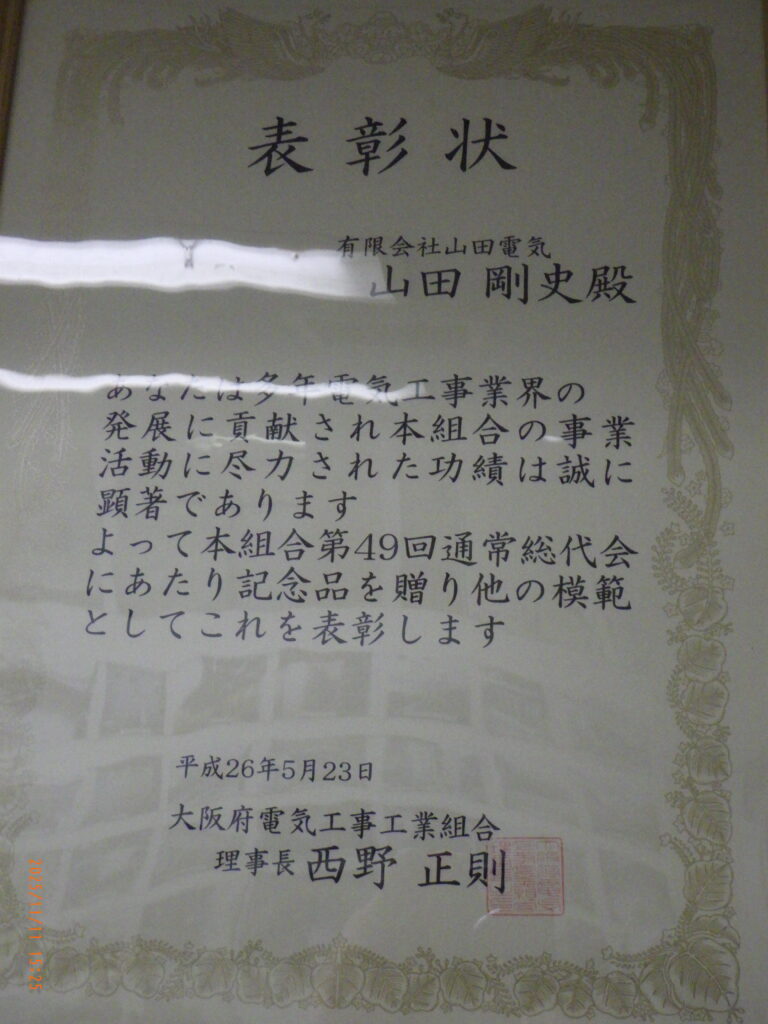 表彰状
有限会社山田電気
山田 剛史殿
あなたは多年電気工事業界の
発展に貢献され本組合の事業
活動に尽力された功績は誠に
顕著であります
よって本組合第49回通常総代会
にあたり記念品を贈り他の模範
としてこれを表彰します
平成26年5月23日
大阪府電気工事工業組合
理事長 西野 正則